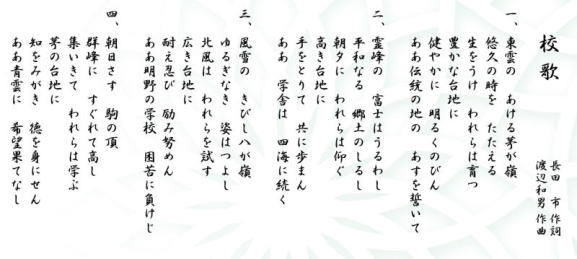 校歌
長田 市 作詞
渡辺和男 作曲
一、東雲の あける茅が嶺
悠久の時を たたえる
生をうけ われらは育つ
豊かな台地に
健やかに 明るくのびん
ああ伝統の地の あすを誓いて
二、霊峰の 富士はうるわし
平和なる 郷土のしるし
朝夕に われらは仰ぐ
高き台地に
手をとりて 共に歩まん
ああ 学舎は 四海に続く
三、風雪の きびし八が嶺
ゆるぎなき 姿はつよし
北風は われらを試す
広き台地に
耐え忍び 励み努めん
ああ明野の学校 困苦に負けじ
四、朝日さす 駒の頂
群峰に すぐれて高し
集いきて われらは学ぶ
茅の台地に
知をみがき 徳を身にせん
ああ青雲に 希望果てなし